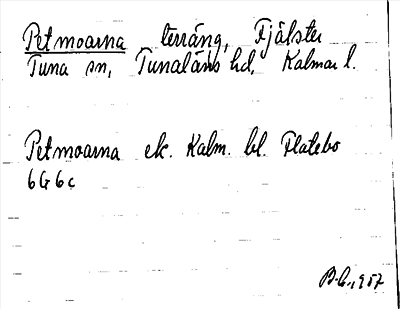 Petmoarna terräng, Fjälster
Tuna sn, Tunaläns hd, Kalmar l.
Petmoarna ek. Kalm. bl. Flatebo
6G6c
B.G. 1957